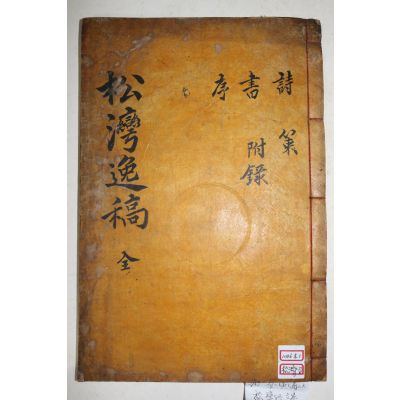 詩 策
書 附錄
序
松灣逸稿 全